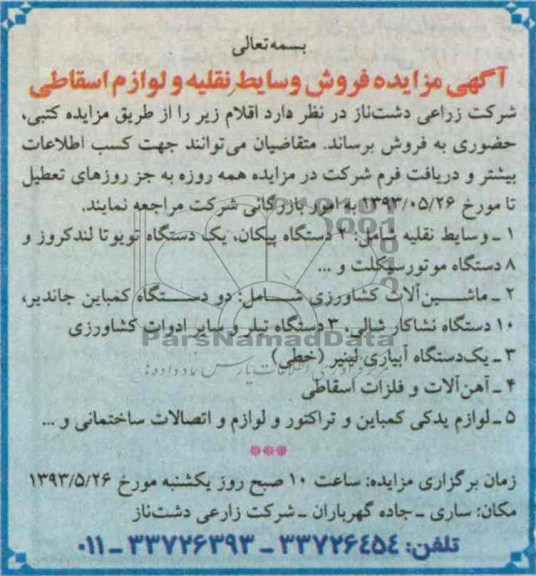 بسمه تعالی
آگهی مزایده فروش وسایط نقلیه و لوازم اسقاطی
شرکت زراعی دشت‌ناز در نظر دارد اقلام زیر را از طریق مزایده کتبی،
حضوری به فروش برساند. متقاضیان می‌توانند جهت کسب اطلاعات
بیشتر و دریافت فرم شرکت در مزایده همه روزه به جز روزهای تعطیل
تا مورخ ۱۳۹۳/۰۵/۲۶ به امور بازرگانی شرکت مراجعه نمایند.
۱ ـ وسایط نقلیه شامل: ۲ دستگاه پیکان، یک دستگاه تویوتا لندکروز و
۸ دستگاه موتورسیکلت و ...
۲ ـ ماشین‌آلات کشاورزی شامل: دو دستگاه کمباین جاندیر،
۱۰ دستگاه نشاکار شالی، ۳ دستگاه تیلر و سایر ادوات کشاورزی
ParsNamadData
۳ ـ یک‌دستگاه آبیاری لینیر (خطی)
۴ ـ آهن‌آلات و فلزات اسقاطی
۵ ـ لوازم یدکی کمباین و تراکتور و لوازم و اتصالات ساختمانی و ...
***
زمان برگزاری مزایده: ساعت ۱۰ صبح روز یکشنبه مورخ ۱۳۹۳/۵/۲۶
مکان: ساری ـ جاده گهرباران ـ شرکت زارعی دشت‌ناز
تلفن: ۳۳۷۲۶۴۵۴ ـ ۳۳۷۲۶۳۹۳ ـ ۰۱۱